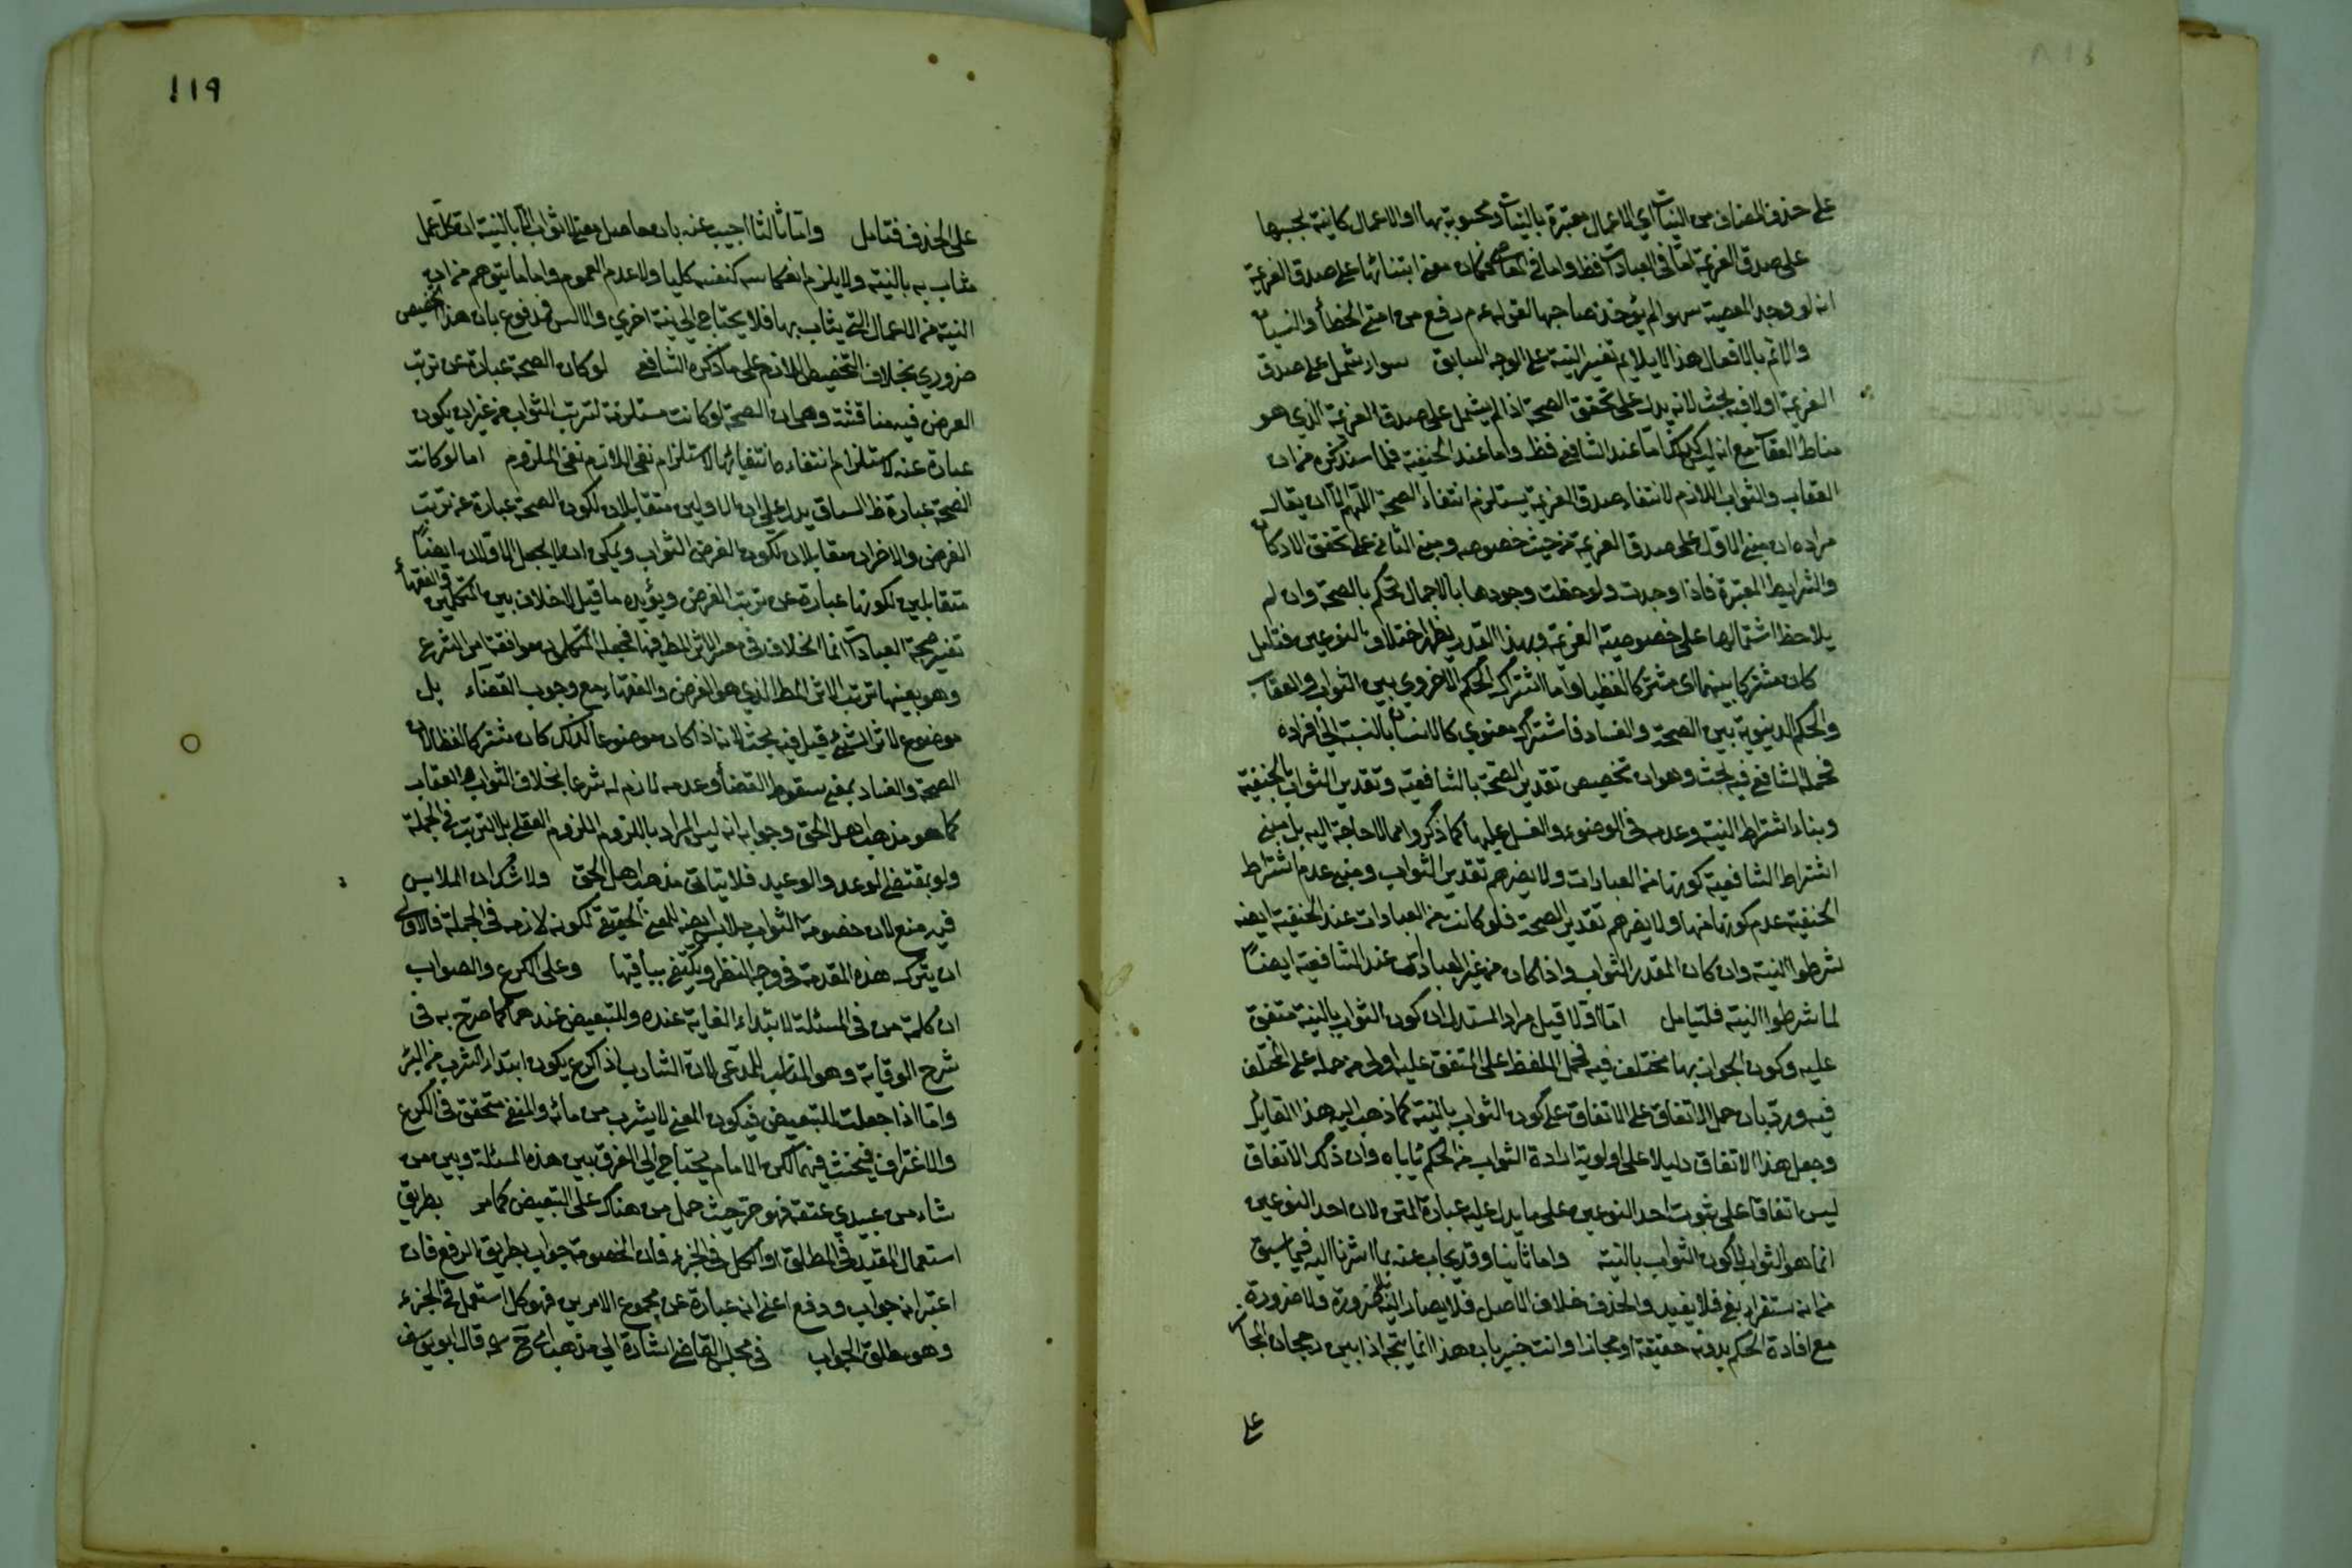 على حذف المضاف من النيات اي الاعمال معتبرة بالنيات ومحسوبة بها او الاعمال كائنة بحسبها
على صدق العزيمة اما في العبادات فظ واما في المعاصي فكان معنى ابتنائها على صدق العزيمة
انه لو وجد المعصية سهوا لم يؤخذ صاحبها لقوله عم رفع عن امتي الخطأ والنسيان
والاثم بالافعال هذا لا يلايم تفسير النية على الوجه السابق سواء شمل على صدق
العزيمة اولا فيه بحث لانه يدل على تحقق الصحة اذا لم يشمل على صدق العزيمة الذي هو
مناط العقاب مع انه ليس كذلك اما عند الشافعي فظ واما عند الحنيفة فلما سنذكره من ان
العقاب والثواب اللازم لانتفاء صدق العزيمة يستلزم انتفاء الصحة اللهم الا ان يقال
مراده ان مبنى الاول على صدق العزيمة من حيث خصوصه ومبنى الثاني على تحقق الاركان
والشرايط المعتبرة فاذا وجدت ولوحظت وجودها بالاجمال نحكم بالصحة وان لم
يلاحظ اشتمالها على خصوصية العزيمة وبهذا القدر يظهر اختلاف النوعين فتامل
كان مشتركا بينهما اى مشتركا لفظيا واما اشتراك الحكم الاخروي بين الثواب والعقاب
والحكم الدنيوية بين الصحة والفساد فاشتراك معنوي كالانسان بالنسبة الى افراده
فحمله الشافعي فيه بحث وهو ان تخصيص تقدير الصحة بالشافعية وتقدير الثواب بالحنفية
وبناء اشتراط النية وعدمه في الوضوء والغسل عليها كما ذكروا مما لا حاجة اليه بل مبنى
اشتراط الشافعية كونها من العبادات ولا يضرهم تقدير الثواب ومبنى عدم اشتراط
الحنفية عدم كونها منها ولا يضرهم تقدير الصحة فلو كانت من العبادات عند الحنفية ايضه
شرطوا النية وان كان المقدر الثواب واذا كان من غير العبادات عند الشافعية ايضاً
لما شرطوا النية فليتامل اما اولا قيل مراد المستدل ان كون الثواب بالنية متفق
عليه وكون الجواز بها مختلف فيه فحمل اللفظ على المتفق عليه اولى من حمله على المختلف
فيه ورد بان حمل الاتفاق على الاتفاق على كون الثواب بالنية كما ذهب اليه هذا القايل
وجعل هذا الاتفاق دليلا على اولوية ارادة الثواب من الحكم يأباه وان ذكر الاتفاق
ليس اتفاقا على ثبوت احد النوعين على ما يدل عليه عبارة المتن لان احد النوعين
انما هو الثواب لا كون الثواب بالنية واما ثانيا وقد يجاب عنه بما اشرنا اليه فيما سبق
من انه مستقر لغو فلا يفيد والحذف خلاف الاصل فلا يصار اليه بلا ضرورة ولا ضرورة
مع افادة الحكم بدونه حقيقة او مجازا وانت خبير بان هذا انما يتجه اذا بين رجحان المجاز
على
١١٩
على الحذف فتامل واما ثالثا اجيب عنه بان حاصل معنى لا ثواب الا بالنية ان كل عمل
مثاب به بالنية ولا يلزم انعكاسه كنفسه كليا ولا عدم العموم واما ما يتوهم من ان
النية من الاعمال التي يثاب بها فلا يحتاج الى نية اخرى والا تس فمدفوع بان هذا التخصيص
ضروري بخلاف التخصيص اللازم على ما ذكره الشافعي لو كان الصحة عبارة عن ترتب
العرض فيه مناقشة وهي ان الصحة لو كانت مستلزمة لترتب الثواب من غير ان يكون
عبارة عنه لاستلزام انتفاءه انتفائها لاستلزام نفي اللازم نفي الملزوم اما لو كانت
الصحة عبارة ظ السباق يدل على ان الاولين متقابلان لكون الصحة عبارة عن ترتب
الغرض والاخران مقابلان لكون الغرض الثواب ويمكن ان لا يجعل الاولان ايضاً
متقابلين لكونها عبارة عن ترتب الغرض ويؤيده ما قيل لا خلاف بين المتكلمين والفقهاء
تفسير صحة العبادات انما الخلاف في معنى الاثر المط فيها فجعله المتكلمون موافقة امر الشرع
وهو بعينها ترتب الاثر المط الذي هو الغرض والفقهاء مع وجوب القضاء بل
موضوع لاثر الشئ قيل فيه بحث لانه اذا كان موضوعا لذلك كان مشتركا لفظا لان
الصحة والفساد بمعنى سقوط القضاء وعدمه لازم له شرعا بخلاف الثواب والعقاب
كما هو مذهب اهل الحق وجوابه انه ليس المراد باللزوم اللزوم العقلي بل الترتب في الجملة
ولو بمقتضى الوعد والوعيد فلا ينافي مذهب اهل الحق ولا شك ان الملابس
فيه منع لان خصومة الثواب ملابس ايضه للمعنى الحقيقي لكونه لازمه في الجملة فالاولى
ان يترك هذه المقدمة في وجه النظر ويكتفى بباقيها وعلى الكرع والصواب
ان كلمة من في المسئلة لابتداء الغاية عنده وللتبعيض عندهما كما صرح به في
شرح الوقاية وهو المناسب للمدعى لان الشارب اذا كرع يكون ابتداء الشرب من البئر
واما اذا جعلت للتبعيض فيكون المعنى لا يشرب من مائه والمنفي متحقق في الكرع
والاغتراف فيحنث فيهما لكن الامام يحتاج الى الفرق بين هذه المسئلة وبين من
شاء من عبيدي عتقه فهو حر حيث حمل من هناك على التبعيض كما مر بطريق
استعمال المقيد في المطلق او الكل في الجزء فان الخصومة جواب بطريق الدفع فان
اعتبر انه جواب ودفع اعني انه عبارة عن مجموع الامرين فهو كل استعمل في الجزء
وهو مطلق الجواب في مجلس القاضي اشارة الى مذهب ابي ح سه قال ابو يوسف